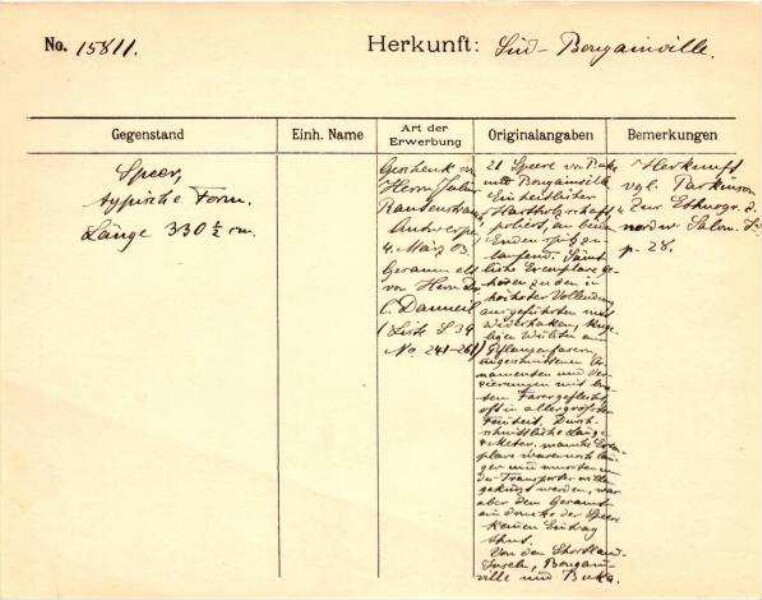 No. 15811.
Herkunft: Süd-Bougainville.
Gegenstand
Einh. Name
Art der Erwerbung
Originalangaben
Bemerkungen
Speer,
typische Form.
Länge 330 ½ cm.
Geschenk von
Herrn Julius
Rautenstrauch,
Antwerpen
4. März 03.
Gesammelt
von Herrn Dr.
C. Danneil
(Liste S 39
No. 241-261)
21 Speere von Buka
und Bougainville
Einheitlicher
Hartholzschaft,
poliert, an beiden
Enden spitz zu-
laufend. Sämt-
liche Exemplare ge-
hören zu den in
höchster Vollendung
ausgeführten mit
Widerhaken, kuge-
ligen Wülsten aus
Pflanzenfasern,
angeschnittenen Or-
namenten und Ver-
zierungen mit
Fasergeflecht,
oft in allergrösster
Feinheit. Durch-
schnittliche Länge
4 Meter. manche Exem-
plare waren noch län-
ger und mussten um
des Transportes willen
gekürzt werden, was
aber dem Gesamt-
eindrucke der Speere
keinen Eintrag
thut.
Von den Shortland-
Inseln, Bougain-
ville und Buka.
"Herkunft
vgl. Parkinson
"Zur Ethnogr. d.
nordw. Salom. I."
p. 28.